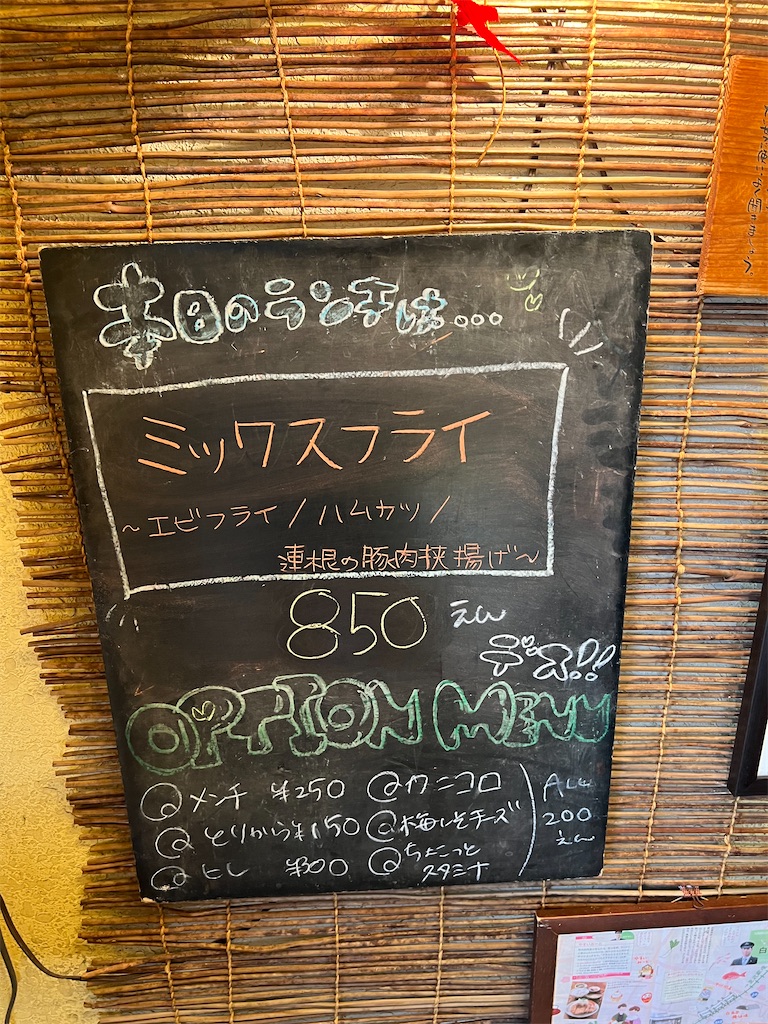 本日のランチは...
ミックスフライ
~エビフライ/ハムカツ/
連根の豚肉挟揚げ~
850 えん
デス!!
OPTION MENU
@メンチ ¥250 @カニコロ
@とりから¥150 @梅しそチーズ
@ヒレ ¥300 @ちょこっと
スタミナ
ALL
200
えん